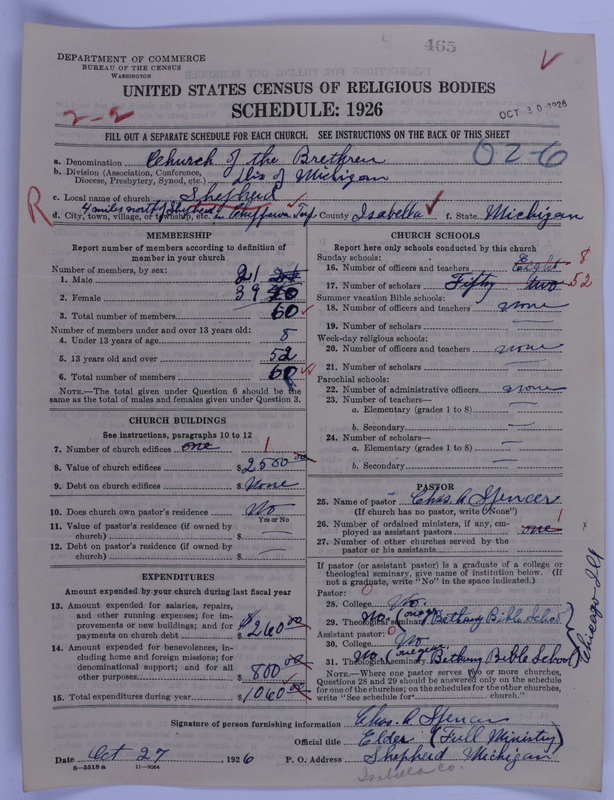 465
DEPARTMENT OF COMMERCE
BUREAU OF THE CENSUS
WASHINGTON
UNITED STATES CENSUS OF RELIGIOUS BODIES
SCHEDULE: 1926
OCT 30 1926
2-2
FILL OUT A SEPARATE SCHEDULE FOR EACH CHURCH. SEE INSTRUCTIONS ON THE BACK OF THIS SHEET
02-6
a. Denomination Church of the Brethren
b. Division (Association, Conference, Diocese, Presbytery, Synod, etc.) Dis of Michigan
c. Local name of church Shepherd
R
d. City, town, village, or township, etc. 4 miles north of Shepherd in Chippewa Twp County Isabella f. State Michigan
MEMBERSHIP
Report number of members according to definition of
member in your church
Number of members, by sex:
1. Male 21
2. Female 39 40
3. Total number of members 60
Number of members under and over 13 years old:
4. Under 13 years of age 8
5. 13 years old and over 52
6. Total number of members 60
NOTE.—The total given under Question 6 should be the
same as the total of males and females given under Question 3.
CHURCH BUILDINGS
See instructions, paragraphs 10 to 12
7. Number of church edifices one 1
8. Value of church edifices $2500.00
9. Debt on church edifices $None
10. Does church own pastor's residence No
Yes or No
11. Value of pastor's residence (if owned by
church) $ —
12. Debt on pastor's residence (if owned by
church) $ —
EXPENDITURES
Amount expended by your church during last fiscal year
13. Amount expended for salaries, repairs,
and other running expenses; for im-
provements or new buildings; and for
payments on church debt $260.00
14. Amount expended for benevolences, in-
cluding home and foreign missions; for
denominational support; and for all
other purposes 800.00
15. Total expenditures during year $1060.00
CHURCH SCHOOLS
Report here only schools conducted by this church
Sunday schools:
16. Number of officers and teachers Eight 8
17. Number of scholars Fifty two 52
Summer vacation Bible schools:
18. Number of officers and teachers none
19. Number of scholars —
Week-day religious schools:
20. Number of officers and teachers none
21. Number of scholars —
Parochial schools:
22. Number of administrative officers none
23. Number of teachers—
a. Elementary (grades 1 to 8) —
b. Secondary —
24. Number of scholars—
a. Elementary (grades 1 to 8) —
b. Secondary —
PASTOR
25. Name of pastor Chas. A Spencer
(If church has no pastor, write "None")
26. Number of ordained ministers, if any, em-
ployed as assistant pastors one 1
27. Number of other churches served by the
pastor or his assistants
If pastor (or assistant pastor) is a graduate of a college or
theological seminary, give name of institution below. (If
not a graduate, write "No" in the space indicated.)
Pastor:
28. College No
29. Theological seminary No Bethany Bible School
Assistant pastor:
30. College No
31. Theological seminary No Bethany Bible School
Chicago Ill
NOTE.—Where one pastor serves two or more churches,
Questions 28 and 29 should be answered only on the schedule
for one of the churches; on the schedules for the other churches,
write "See schedule for church."
Signature of person furnishing information Chas. A Spencer
Official title Elder (Full Ministry)
Date Oct 27, 1926 P. O. Address Shepherd Michigan
Isabella Co.
8-5518 a 11-9034